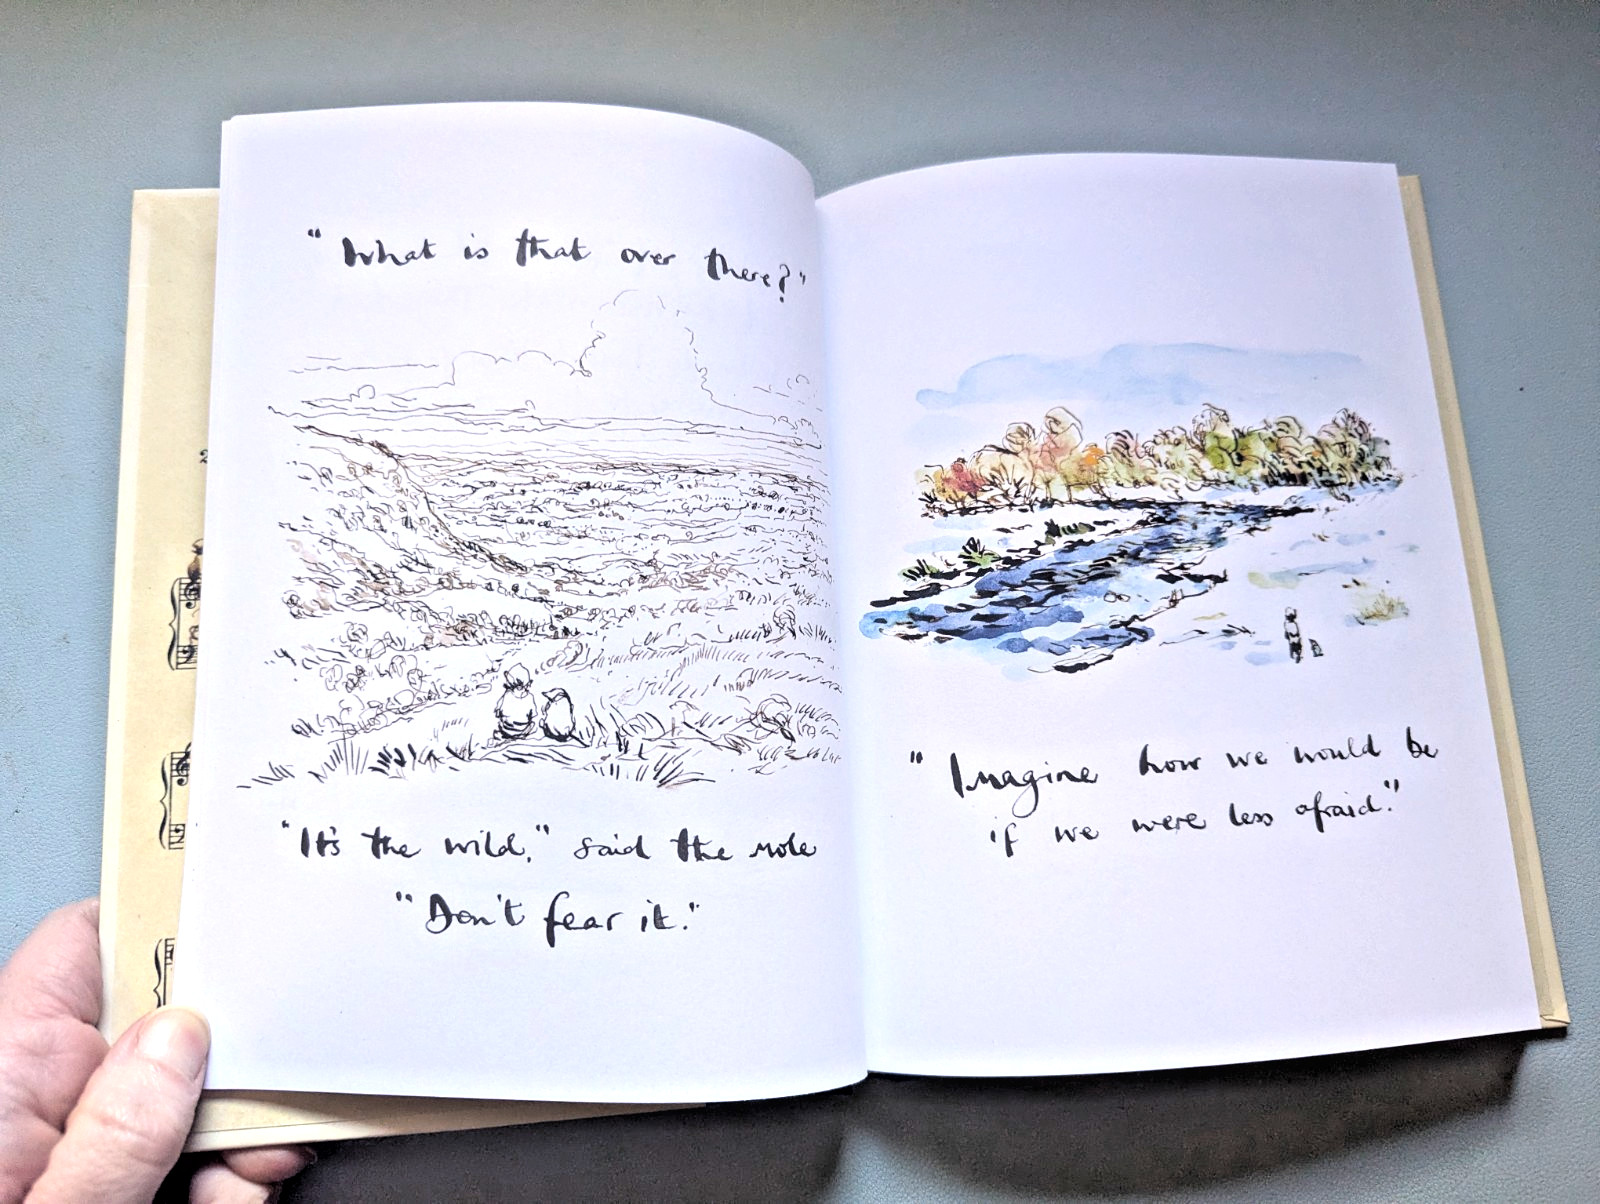 "What is that over there?"
"It's the wild," said the mole
"Don't fear it."
"Imagine how we would be
if we were less afraid."